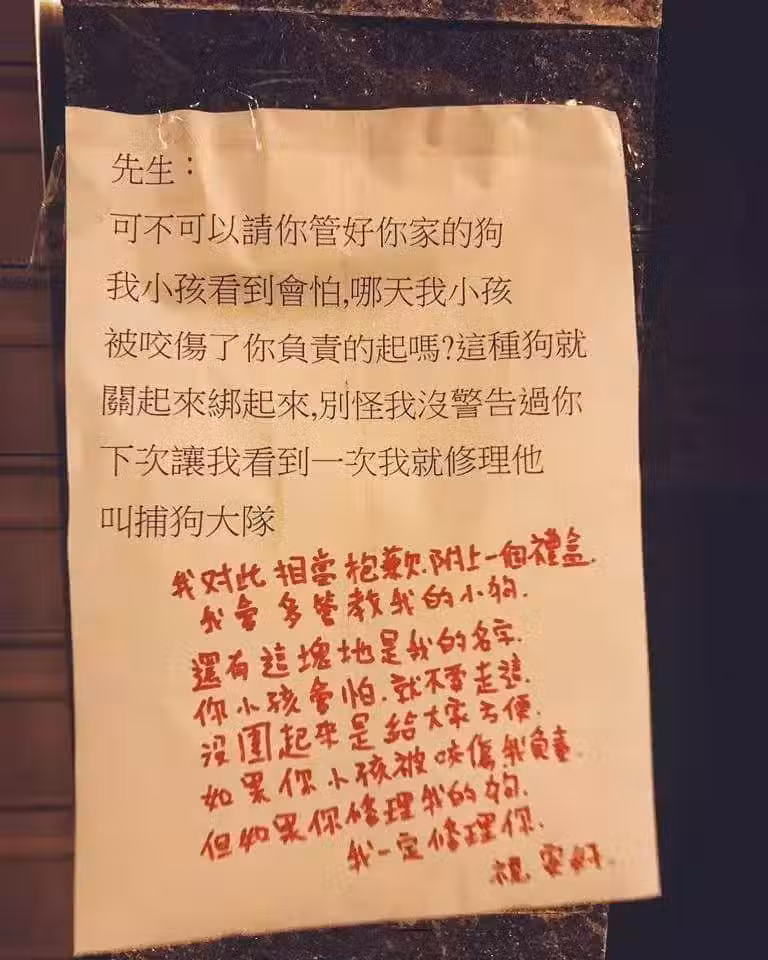 先生：
可不可以請你管好你家的狗
我小孩看到會怕,哪天我小孩
被咬傷了你負責的起嗎?這種狗就
關起來綁起來,別怪我沒警告過你
下次讓我看到一次我就修理他
叫捕狗大隊
我对此相當抱歉.附上一個禮盒.
我會多管教我的小狗.
還有這塊地是我的名字.
你小孩會怕.就不要走這.
沒圍起來是給大家方便.
如果你小孩被咬傷我負責.
但如果你修理我的狗.
我一定修理你.
祝安好.